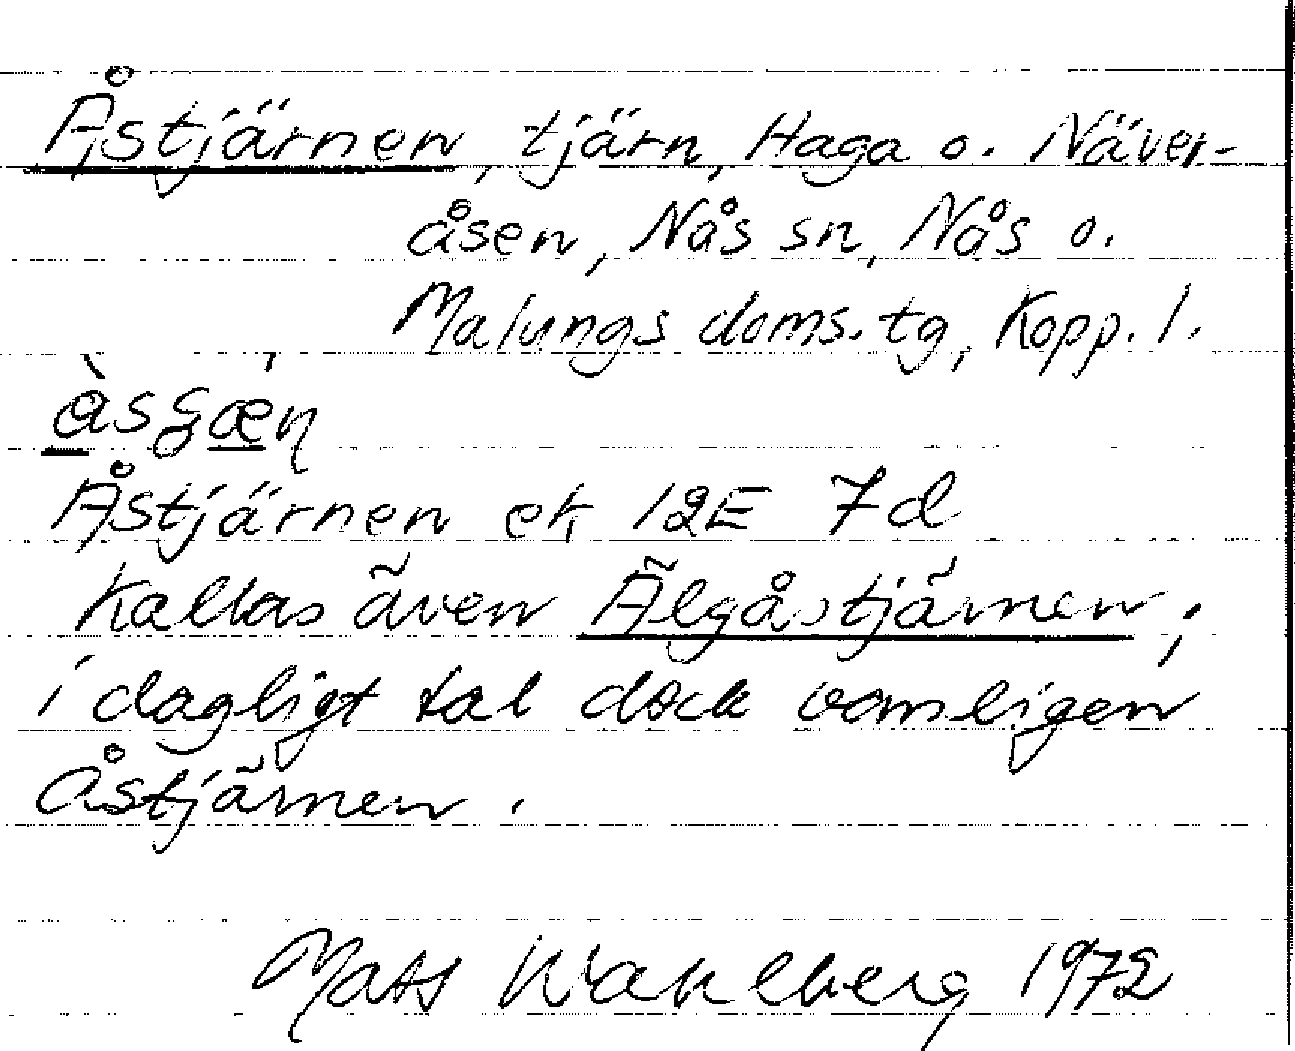 Åstjärnen, tjärn, Haga o. Näver-
åsen, Nås sn, Nås o.
Malungs doms. tg, Kopp. l.
Åstjärnen ek 12E 7d
Kallas även Älgåstjärnen;
i dagligt tal dock vanligen
Åstjärnen.
Mats Wahlberg 1972